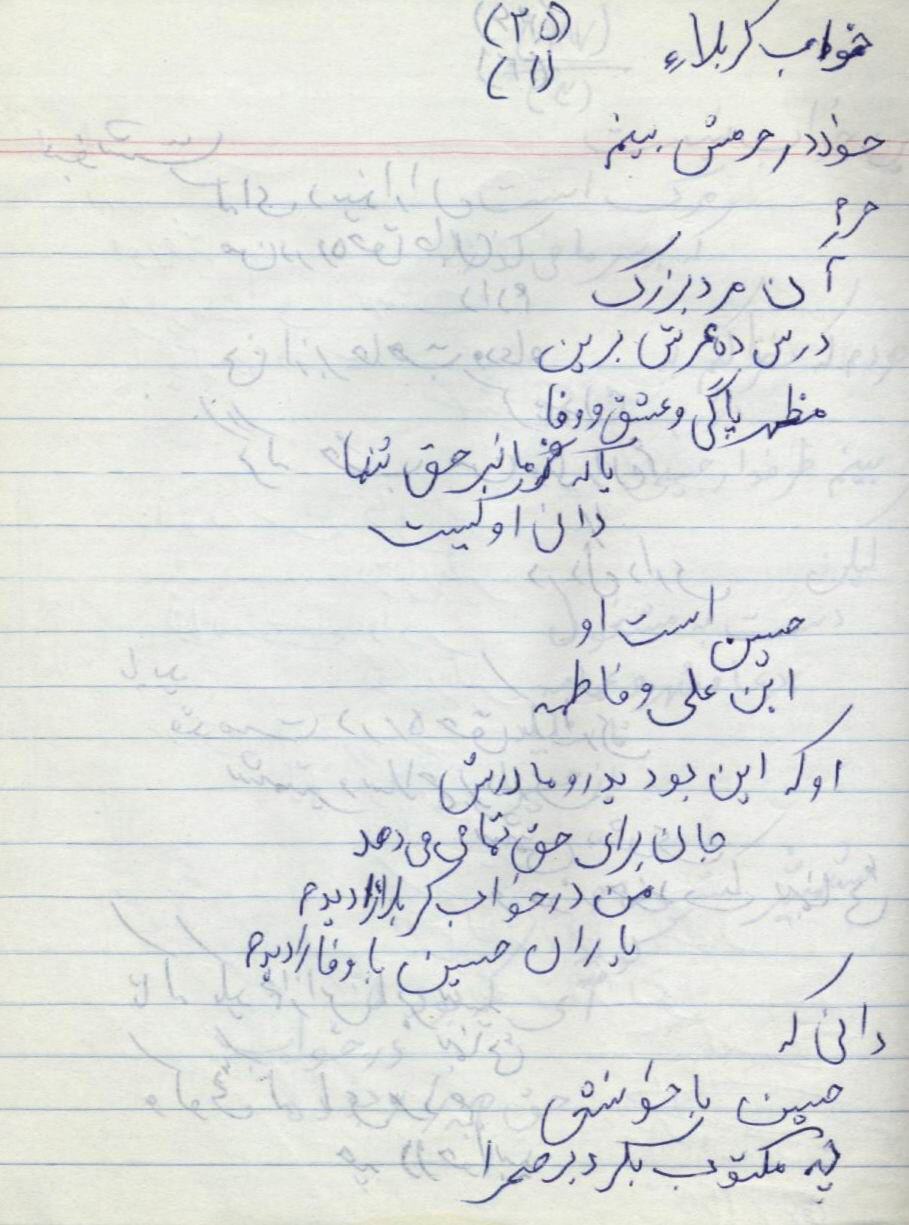 خواب کربلاء (۳۵)
(۱)
خود در حرمش بینم
حرم
آن مرد بزرگ
درس ده عرش برین
مظهر پاکی و عشق و وفا
یا که فرمانبر حق تنها
دانی او کیست
حسین است او
ابن علی و فاطمه
او که این بود پدر و مادرش
جان برای حق تمامی می دهد
من در خواب کربلا را دیدم
یاران حسین با وفا را دیدم
دانی که
حسین با خونش
چه مکتوب بکرد بر صحرا